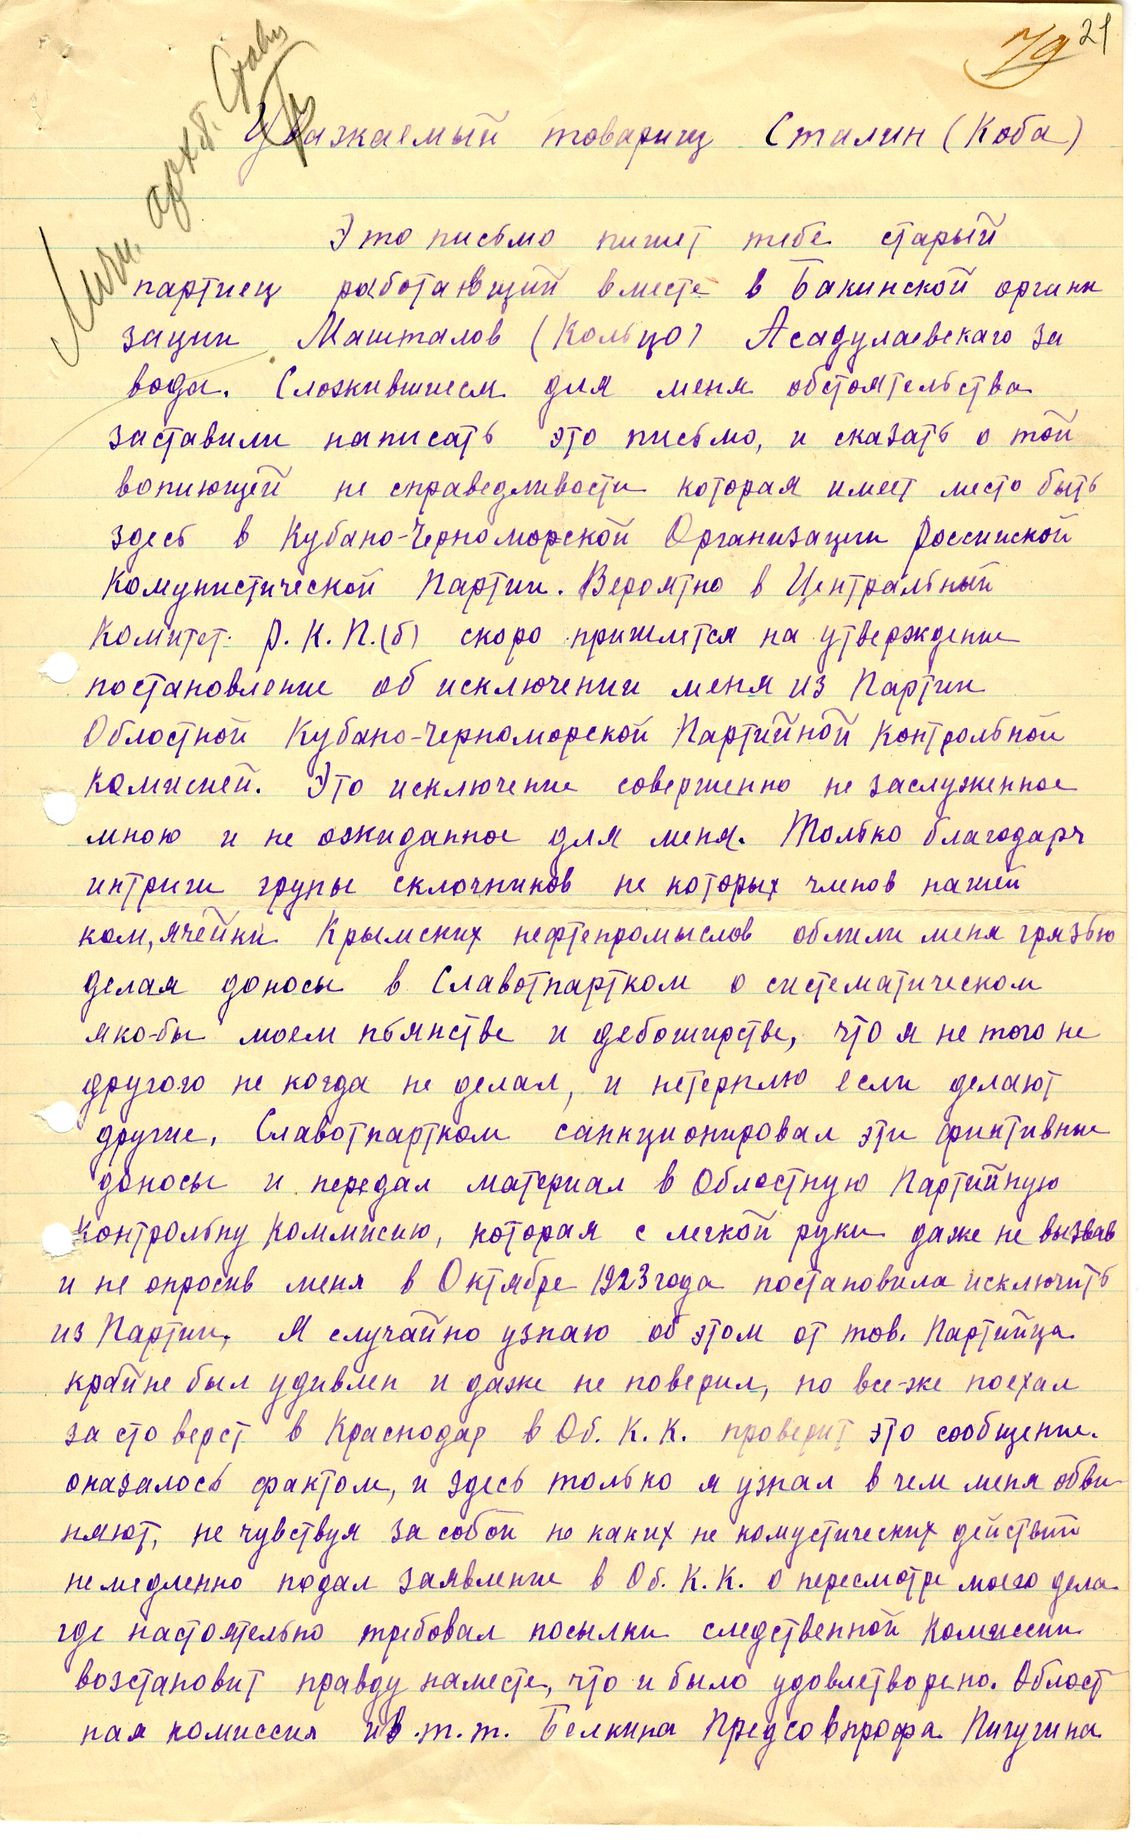 79 21
Личн. арх. Стал.
Уважаемый товарищ Сталин (Коба)
Это письмо пишет тебе старый
партиец работающий вместе в Бакинской органи
зации Машталов (Кольцо) Асадулаевскаго за
вода. Сложившиеся для меня обстоятельства
заставили написать это письмо, и сказать о той
вопиющей не справедливости которая имеет место быть
здесь в Кубано-Черноморской Организации Российской
Комунистической Партии. Вероятно в Центральный
Комитет Р.К.П.(б) скоро пришлется на утверждение
постановление об исключении меня из Партии
Областной Кубано-Черноморской Партийной Контрольной
Комисией. Это исключение совершенно не заслуженное
мною и не ожиданное для меня. Только благодарч
интриги групы склочников не которых членов нашей
ком,ячейки Крымских нефтепромыслов облили меня грязью
делая доносы в Славотпартком о систематическом
яко-бы моем пьянстве и дебоширстве, что я не того не
другого не когда не делал, и нетерплю если делают
другие, Славотпартком санкционировал эти фиктивные
доносы и передал материал в Областную Партийную
Контрольну Коммисию, которая с легкой руки даже не вызвав
и не опросив меня в Октябре 1923 года постановила исключить
из Партии. Я случайно узнаю об этом от тов. Партийца
крайне был удивлен и даже не поверил, но все-же поехал
за сто верст в Краснодар в Об. К. К. проверит это сообщение.
оказалось фактом, и здесь только я узнал в чем меня обви-
няют, не чувствуя за собой но каких не комустических действий
немедленно подал заявление в Об. К. К. о пересмотре моего дела
где настоятельно требовал посылки следственной Комиссии
возстановит правду наместе, что и было удовлетворено. Област
ная комиссия из т.т. Белкина Предсовпрофа Пичугина